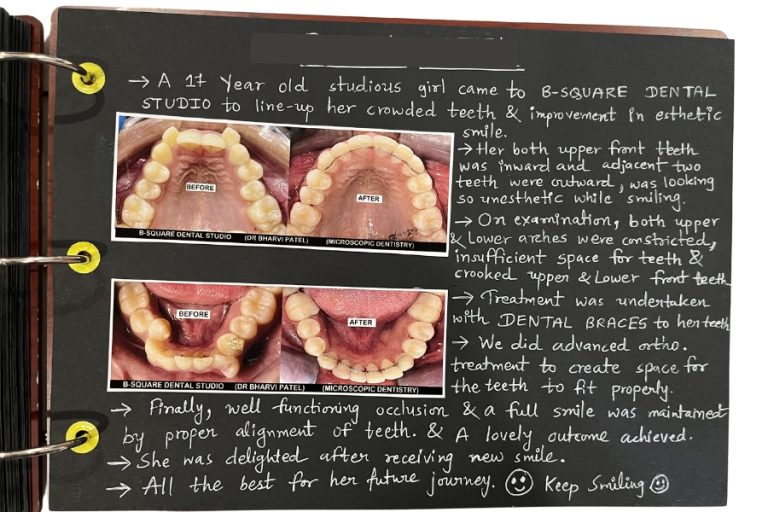 → A 17 Year old studious girl came to B-SQUARE DENTAL
STUDIO to line-up her crowded teeth & improvement in esthetic
smile.
BEFORE
AFTER
B-SQUARE DENTAL STUDIO (DR BHARVI PATEL) (MICROSCOPIC DENTISTRY)
→ Her both upper front teeth
was inward and adjacent two
teeth were outward, was looking
so unesthetic while smiling.
→ On examination, both upper
& Lower arches were constricted,
insufficient space for teeth &
crooked upper & Lower front teeth
BEFORE
AFTER
B-SQUARE DENTAL STUDIO (DR BHARVI PATEL) (MICROSCOPIC DENTISTRY)
→ Treatment was undertaken
with DENTAL BRACES to her teeth
→ We did advanced ortho.
treatment to create space for
the teeth to fit properly.
→ Finally, well functioning occlusion & a full smile was maintained
by proper alignment of teeth. & A lovely outcome achieved.
→ She was delighted after receiving new smile.
→ All the best for her future journey. ☺ Keep Smiling ☺